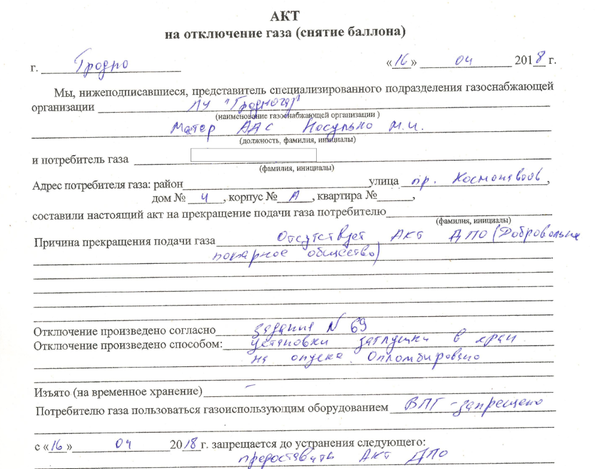 АКТ
на отключение газа (снятие баллона)
г. Гродно «16» 04 2018 г.
Мы, нижеподписавшиеся, представитель специализированного подразделения газоснабжающей
организации ПУ "Гродногаз"
(наименование газоснабжающей организации )
Мастер АДС Носулько М.И.
(должность, фамилия, инициалы)
и потребитель газа
(фамилия, инициалы)
Адрес потребителя газа: район улица пр. Космонавтов,
дом № 4, корпус № А, квартира № ,
составили настоящий акт на прекращение подачи газа потребителю
(фамилия, инициалы)
Причина прекращения подачи газа Отсутствует Акт ДПО (Добровольное
пожарное общество)
Отключение произведено согласно задания № 69
Отключение произведено способом: установки заглушки в кран
на опуске. Опломбировано
Изъято (на временное хранение) –
Потребителю газа пользоваться газоиспользующим оборудованием ВПГ - запрещено
с «16» 04 2018 г. запрещается до устранения следующего:
предоставить Акт ДПО